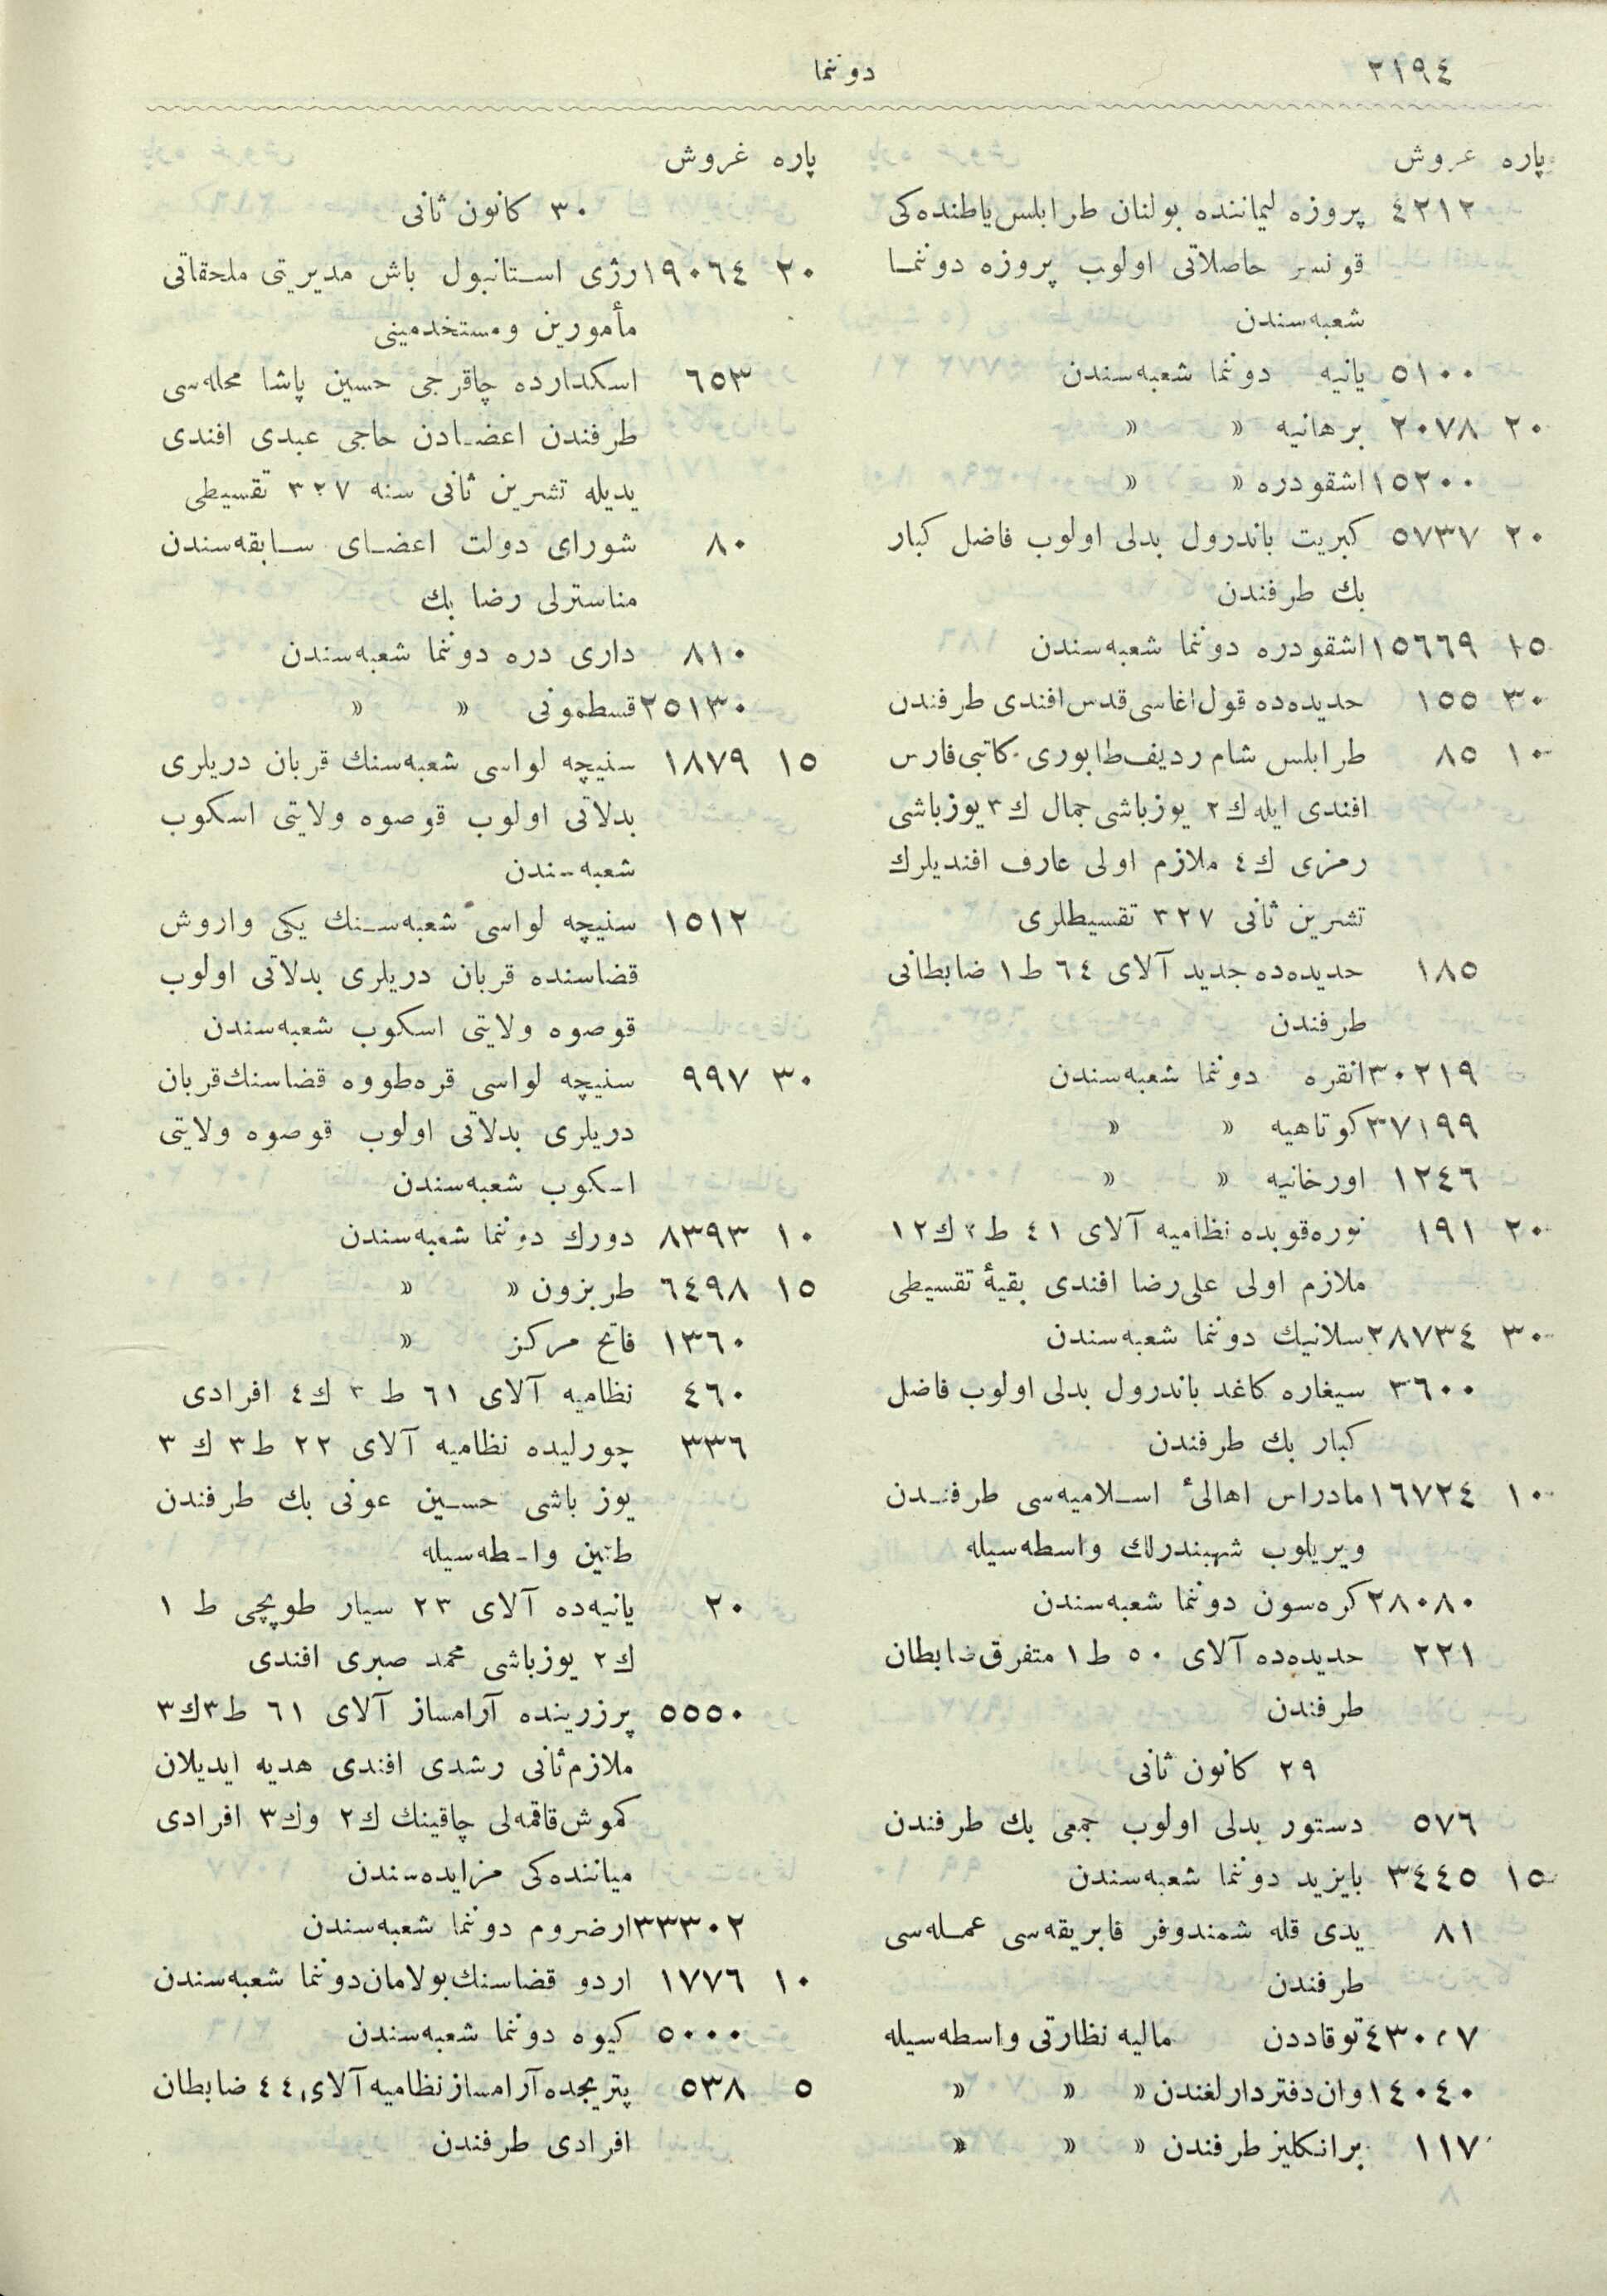 ٢١٩٤
دوننما
پاره غروش
٤٢١٢ پروزه ليماننده بولنان طرابلس ياطنده‌كى
قونسر حاصلاتى اولوب پروزه دوننما
شعبه‌سندن
٥١٠٠ يانيه دوننما شعبه‌سندن
٢٠ ٢٠٧٨ برهانيه « «
١٥٢٠٠ اشقودره « «
٢٠ ٥٧٣٧ كبريت باندرول بدلى اولوب فاضل كبار
بك طرفندن
١٥ ١٥٦٦٩ اشقودره دوننما شعبه‌سندن
٣٠ ١٥٥ حديده‌ده قول اغاسى قدسى افندى طرفندن
١٠ ٨٥ طرابلس شام رديف طابورى كاتبى فارس
افندى ايله ك ٢ يوزباشى جمال ك ٣ يوزباشى
رمزى ك ٤ ملازم اولى عارف افنديلرك
تشرين ثانى ٣٢٧ تقسيطلرى
١٨٥ حديده‌ده جديد آلاى ٦٤ ط ١ ضابطانى
طرفندن
٣٠٢١٩ انقره دوننما شعبه‌سندن
٣٧١٩٩ كوتاهيه « «
١٢٤٦ اورخانيه « «
٢٠ ١٩١ نوره‌قوبده نظاميه آلاى ٤١ ط ٢ ك ١٢
ملازم اولى على رضا افندى بقيهٔ تقسيطى
٣٠ ٢٨٧٣٤ سلانيك دوننما شعبه‌سندن
٣٦٠٠ سيغاره كاغد باندرول بدلى اولوب فاضل
كبار بك طرفندن
١٠ ١٦٧٢٤ مادراس اهالئ اسلاميه‌سى طرفندن
ويريلوب شهبندرلك واسطه‌سيله
٢٨٠٨٠ كره‌سون دوننما شعبه‌سندن
٢٢١ حديده‌ده آلاى ٥٠ ط ١ متفرق ضابطان
طرفندن
٢٩ كانون ثانى
٥٧٦ دستور بدلى اولوب جمعى بك طرفندن
١٥ ٣٤٤٥ بايزيد دوننما شعبه‌سندن
٨١ يدى قله شمندوفر فابريقه‌سى عمله‌سى
طرفندن
٤٣٠٢٧ توقاددن ماليه نظارتى واسطه‌سيله
١٤٠٤٠ وان دفتردارلغندن « « «
١١٧ بر انكليز طرفندن « « «
پاره غروش
٣٠ كانون ثانى
٢٠ ١٩٠٦٤ رژى استانبول باش مديريتى ملحقاتى
مأمورين ومستخدمينى
٦٥٣ اسكدارده چاقرجى حسين پاشا محله‌سى
طرفندن اعضادن حاجى عبدى افندى
يديله تشرين ثانى سنه ٣٢٧ تقسيطى
٨٠ شوراى دولت اعضاى سابقه‌سندن
مناسترلى رضا بك
٨١٠ دارى دره دوننما شعبه‌سندن
٢٥١٣٠ قسطمونى « «
١٥ ١٨٧٩ سنيچه لواسى شعبه‌سنك قربان دريلرى
بدلاتى اولوب قوصوه ولايتى اسكوب
شعبه‌سندن
١٥١٢ سنيچه لواسى شعبه‌سنك يكى واروش
قضاسنده قربان دريلرى بدلاتى اولوب
قوصوه ولايتى اسكوب شعبه‌سندن
٣٠ ٩٩٧ سنيچه لواسى قره‌طووه قضاسنك قربان
دريلرى بدلاتى اولوب قوصوه ولايتى
اسكوب شعبه‌سندن
١٠ ٨٣٩٣ دورك دوننما شعبه‌سندن
١٥ ٦٤٩٨ طربزون « «
١٣٦٠ فاتح مركز «
٤٦٠ نظاميه آلاى ٦١ ط ٣ ك ٤ افرادى
٣٣٦ چورليده نظاميه آلاى ٢٢ ط ٣ ك ٣
يوز باشى حسين عونى بك طرفندن
طنين واسطه‌سيله
٢٠ يانيه‌ده آلاى ٢٣ سيار طوپچى ط ١
ك ٢ يوزباشى محمد صبرى افندى
٥٥٥٠ پرزرينده آرامساز آلاى ٦١ ط ٣ ك ٣
ملازم ثانى رشدى افندى هديه ايديلان
كموش قاقمه‌لى چاقينك ك ٢ وك ٣ افرادى
مياننده‌كى مزايده‌سندن
٣٣٣٠٢ ارضروم دوننما شعبه‌سندن
١٠ ١٧٧٦ اردو قضاسنك بولامان دوننما شعبه‌سندن
٥٠٠٠ كيوه دوننما شعبه‌سندن
٥ ٥٣٨ پتريجده آرامساز نظاميه آلاى ٤٤ ضابطان
افرادى طرفندن